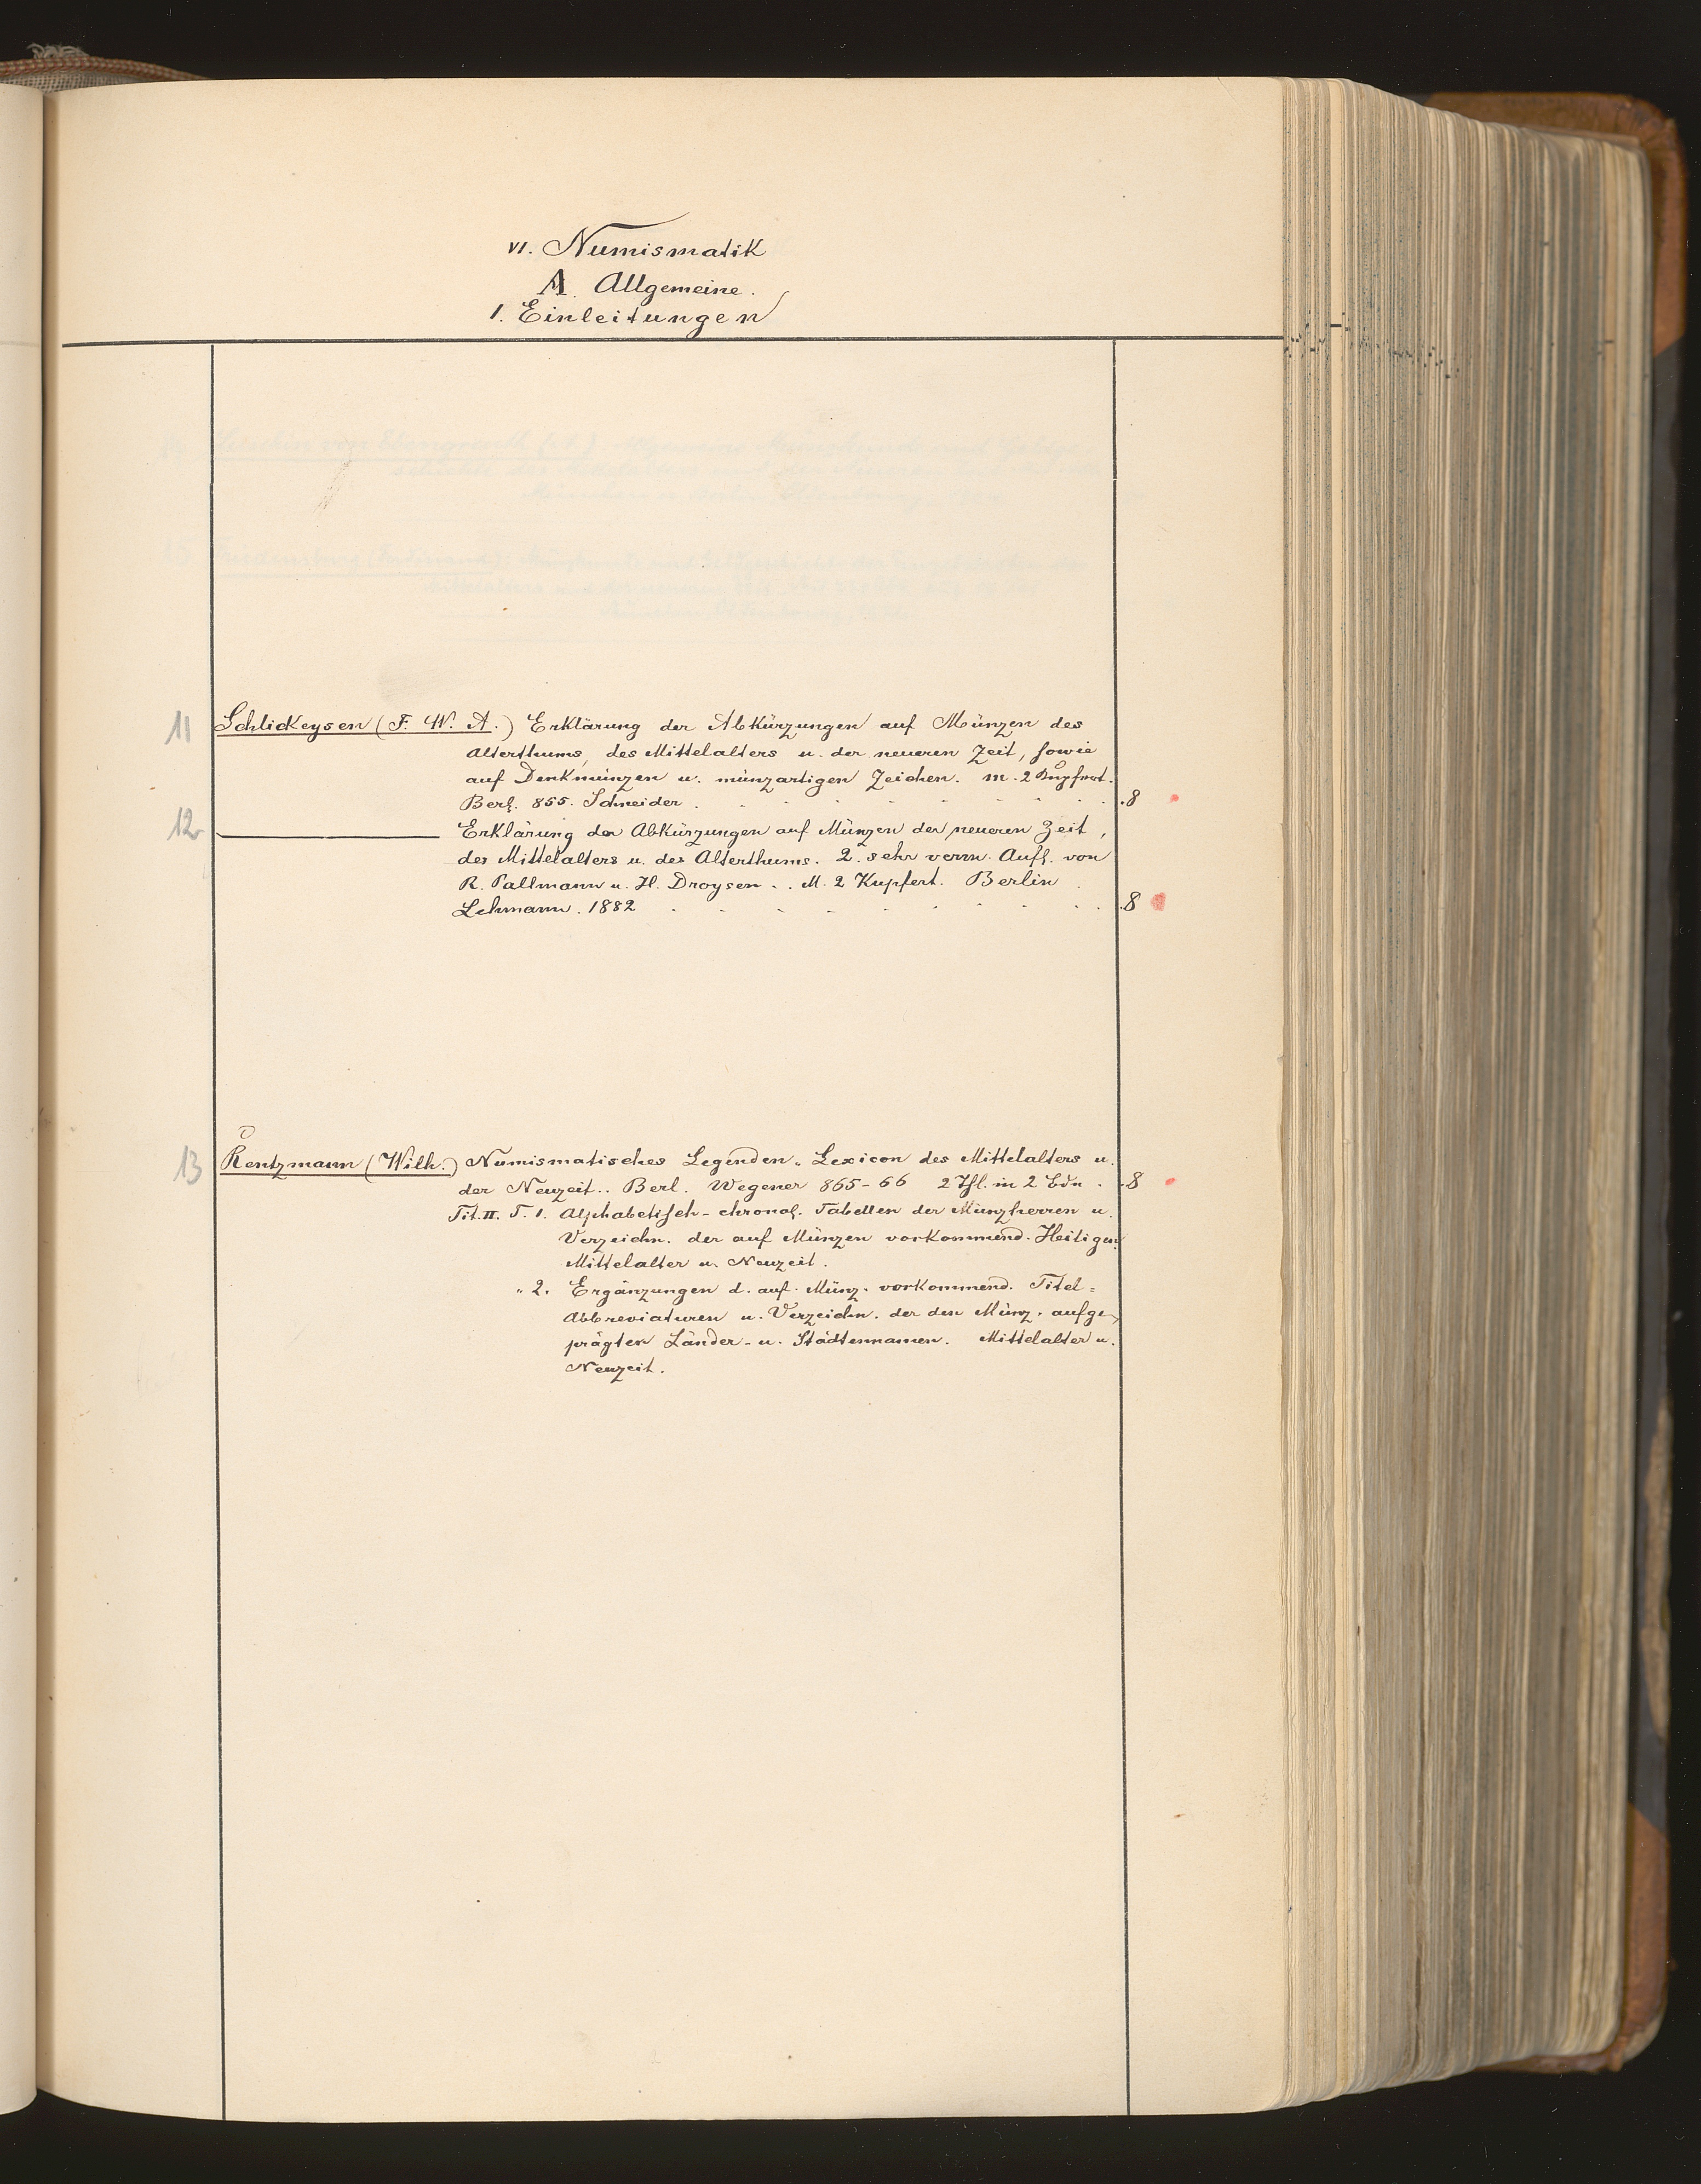 VI. Numismatik
A. Allgemeine.
1. Einleitungen
11 Schlickeysen (F. W. A.) Erklärung der Abkürzungen auf Münzen des
Alterthums, des Mittelalters u. der neueren Zeit, sowie
auf Denkmünzen u. münzartigen Zeichen. m. 2
Berl. 855. Schneider . . . . . . . . . 8
12 ——— Erklärung der Abkürzungen auf Münzen der neueren Zeit,
des Mittelalters u. des Alterthums. 2. sehr verm. Aufl. von
R. Pallmann u. H. Droysen . . M. 2 Kupfert. Berlin
Lehmann. 1882 . . . . . . . . . 8
13 Rentzmann (Wilh.) Numismatisches Legenden-Lexicon des Mittelalters u.
der Neuzeit.. Berl. Wegener 865-66 2 Thl. in 2 Bdn . . 8
Tit. II. T. 1. Alphabetisch-chronol. Tabellen der Münzherren u.
Verzeichn. der auf Münzen vorkommend. Heiligen.
Mittelalter u. Neuzeit.
" 2. Ergänzungen d. auf. Münz. vorkommend. Titel=
Abbreviaturen u. Verzeichn. der den Münz. aufge-
prägten Länder- u. Städtennamen. Mittelalter u.
Neuzeit.